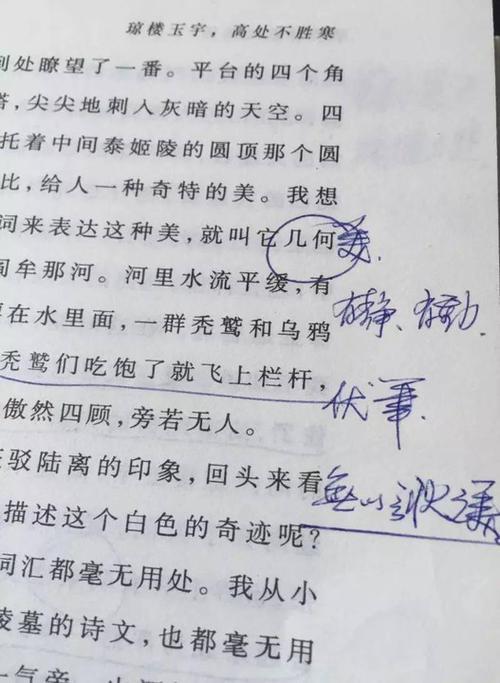 琼楼玉宇，高处不胜寒
到处瞭望了一番。平台的四个角
塔，尖尖地刺人灰暗的天空。四
托着中间泰姬陵的圆顶那个圆
比，给人一种奇特的美。我想
词来表达这种美，就叫它几何美.
阎牟那河。河里水流平缓，有
有静、有动
在水里面，一群秃鹫和乌鸦
秃鹫们吃饱了就飞上栏杆，
伏笔.
傲然四顾，旁若无人。
驳陆离的印象，回头来看
描述这个白色的奇迹呢？
词汇都毫无用处。我从小
陵墓的诗文，也都毫无用
一气旁